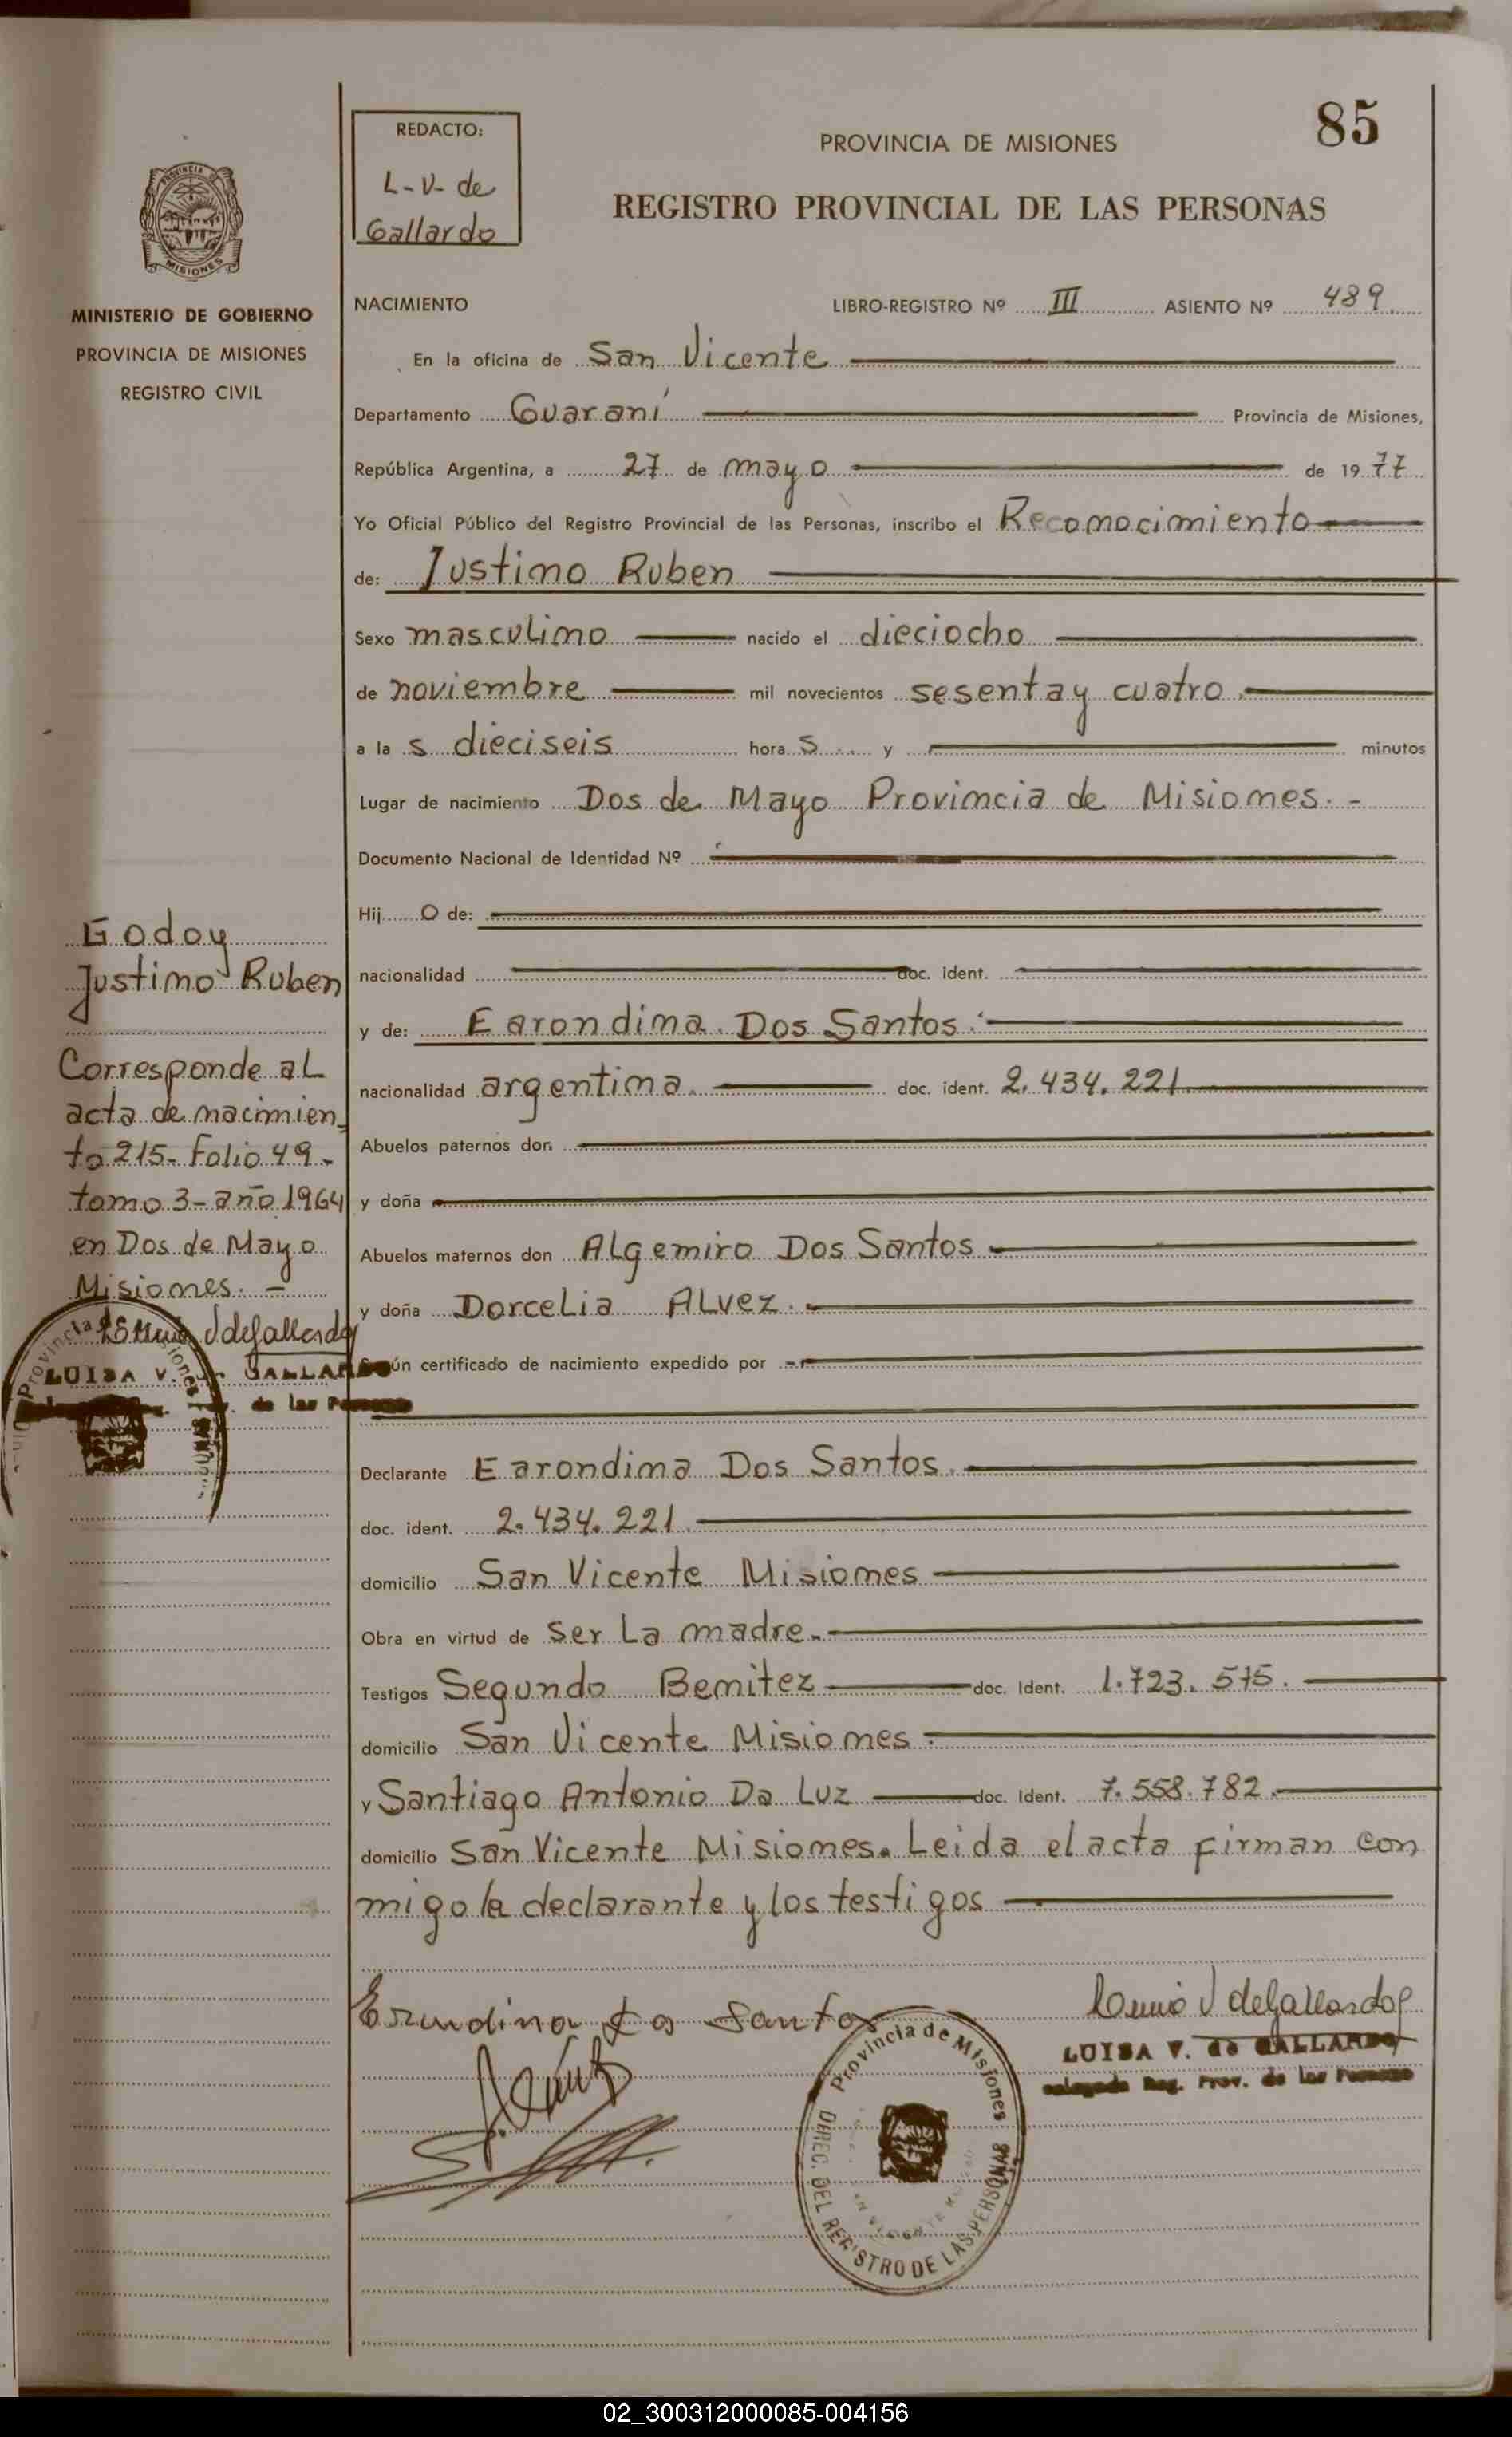 85
REDACTO:
L-V- de
Gallardo
PROVINCIA DE MISIONES
REGISTRO PROVINCIAL DE LAS PERSONAS
PROVINCIA DE
MISIONES
MINISTERIO DE GOBIERNO
PROVINCIA DE MISIONES
REGISTRO CIVIL
NACIMIENTO LIBRO-REGISTRO Nº III ASIENTO Nº 489
En la oficina de San Vicente
Departamento Guaraní Provincia de Misiones,
República Argentina, a 27 de mayo de 1977
Yo Oficial Público del Registro Provincial de las Personas, inscribo el Reconocimiento
de: Justino Ruben
Sexo masculino nacido el dieciocho
de noviembre mil novecientos sesenta y cuatro.
a la s dieciseis hora s y minutos
Lugar de nacimiento Dos de Mayo Provincia de Misiones. -
Documento Nacional de Identidad Nº
Hij o de:
nacionalidad doc. ident.
y de: Earondina Dos Santos.
nacionalidad argentina. doc. ident. 2.434.221
Abuelos paternos don
y doña
Abuelos maternos don Algemiro Dos Santos
y doña Dorcelia Alvez.
Según certificado de nacimiento expedido por
Declarante Earondina Dos Santos.
doc. ident. 2.434.221.
domicilio San Vicente Misiones
Obra en virtud de ser la madre.
Testigos Segundo Benitez doc. Ident. 1.723.575.
domicilio San Vicente Misiones.
y Santiago Antonio Da Luz doc. Ident. 7.558.782.
domicilio San Vicente Misiones. Leida el acta firman con
migo la declarante y los testigos
Godoy
Justino Ruben
Corresponde al
acta de nacimien_
to 215- Folio 49-
tomo 3- año 1964
en Dos de Mayo
Misiones. -
V de Gallardo
LUISA V. de GALLARDO
de las Personas
Erundina dos Santos
V de Gallardo
LUISA V. de GALLARDO
Delegada Reg. Prov. de las Personas
Provincia de Misiones
DIREC. DEL REGISTRO DE LAS PERSONAS
02_300312000085-004156